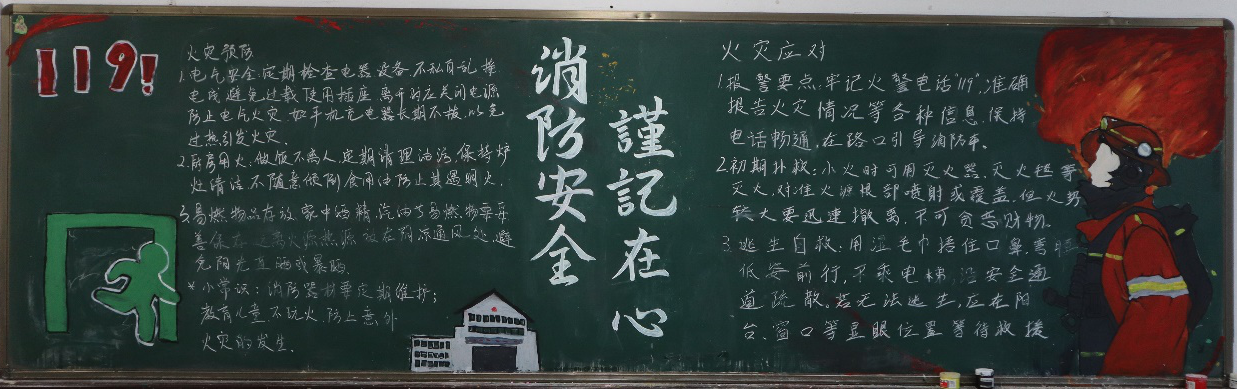 119!
火灾预防
1.电气安全:定期检查电器设备.不私自乱接
电线避免过载使用插座.离开时应关闭电源
防止电气火灾.如手机充电器长期不拔.以免
过热引发火灾.
2.厨房用火.做饭不离人.定期清理油污.保持炉
灶清洁.不随意倾倒食用油防止其遇明火.
3.易燃物品存放.家中酒精,汽油等易燃物要妥
善保存 远离火源热源 放在阴凉通风处.避
免阳光直晒或暴晒.
*小常识:消防器材要定期维护;
教育儿童不玩火.防止意外
火灾的发生.
消防安全
謹記在心
火灾应对
1.报警要点.牢记火警电话"119".准确
报告火灾情况等各种信息.保持
电话畅通.在路口引导消防车.
2.初期扑救:小火时可用灭火器.灭火毯等
灭火.对准火源根部喷射或覆盖.但火势
较大要迅速撤离.不可贪恋财物.
3.逃生自救.用湿毛巾捂住口鼻.弯腰
低姿前行,不乘电梯,沿安全通
道疏散.若无法逃生,应在阳
台.窗口等显眼位置等待救援